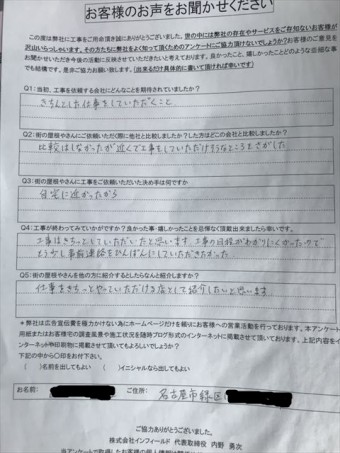 お客様のお声をお聞かせください
この度は弊社に工事をご用命頂き誠にありがとうございます。世の中には弊社の存在やサービスをご存知ないお客様が
沢山いらっしゃいます。その方たちに弊社をよく知って頂くためのアンケートにご協力頂けないでしょうか?お客様のご意見を
お聞かせいただき今後の活動に反映させていただきたいと考えております。良かったこと、嬉しかったことどのような些細な事
でも結構です。是非ご協力お願い致します。(出来るだけ具体的に書いて頂ければ幸いです)
Q1:当初、工事を依頼する会社にどんなことを期待されていましたか?
きちんとした仕事をしていただくこと
Q2:街の屋根やさんにご依頼いただく際に他社と比較しましたか?した方はどこの会社と比較しましたか?
比較はしなかったが近くで工事をしていただけそうなところをさがした
Q3:街の屋根やさんに工事をご依頼いただいた決め手は何ですか
自宅に近かったから
Q4:工事が終わってみていかがですか?良かった事・嬉しかったことを忌憚なく頂戴出来ましたら幸いです。
工事はきちっとしていただいたと思います。工事の日程がわかりにくかったので
もう少し事前連絡をひんぱんにしていただきたかった
Q5:街の屋根やさんを他の方に紹介するとしたらなんと紹介しますか?
仕事をきちっとやっていただける店として紹介したいと思います。
*弊社は広告宣伝費を極力かけない為にホームページだけを頼りにお客様への営業活動を行っております。本アンケート
用紙またはお客様宅の調査風景や施工状況を随時ブログ形式のインターネットに掲載させて頂いております。上記内容をイ
ンターネットや印刷物に掲載させて頂いてもよろしいでしょうか?
下記の中から○印をお付下さい。
( )名前を出してもよい ( )イニシャルなら出してもよい
お名前: ご住所: 名古屋市緑区
ご協力ありがとうございました。
株式会社インフィールド 代表取締役 内野 勇次
当アンケートで取得したお客様の個人情報は